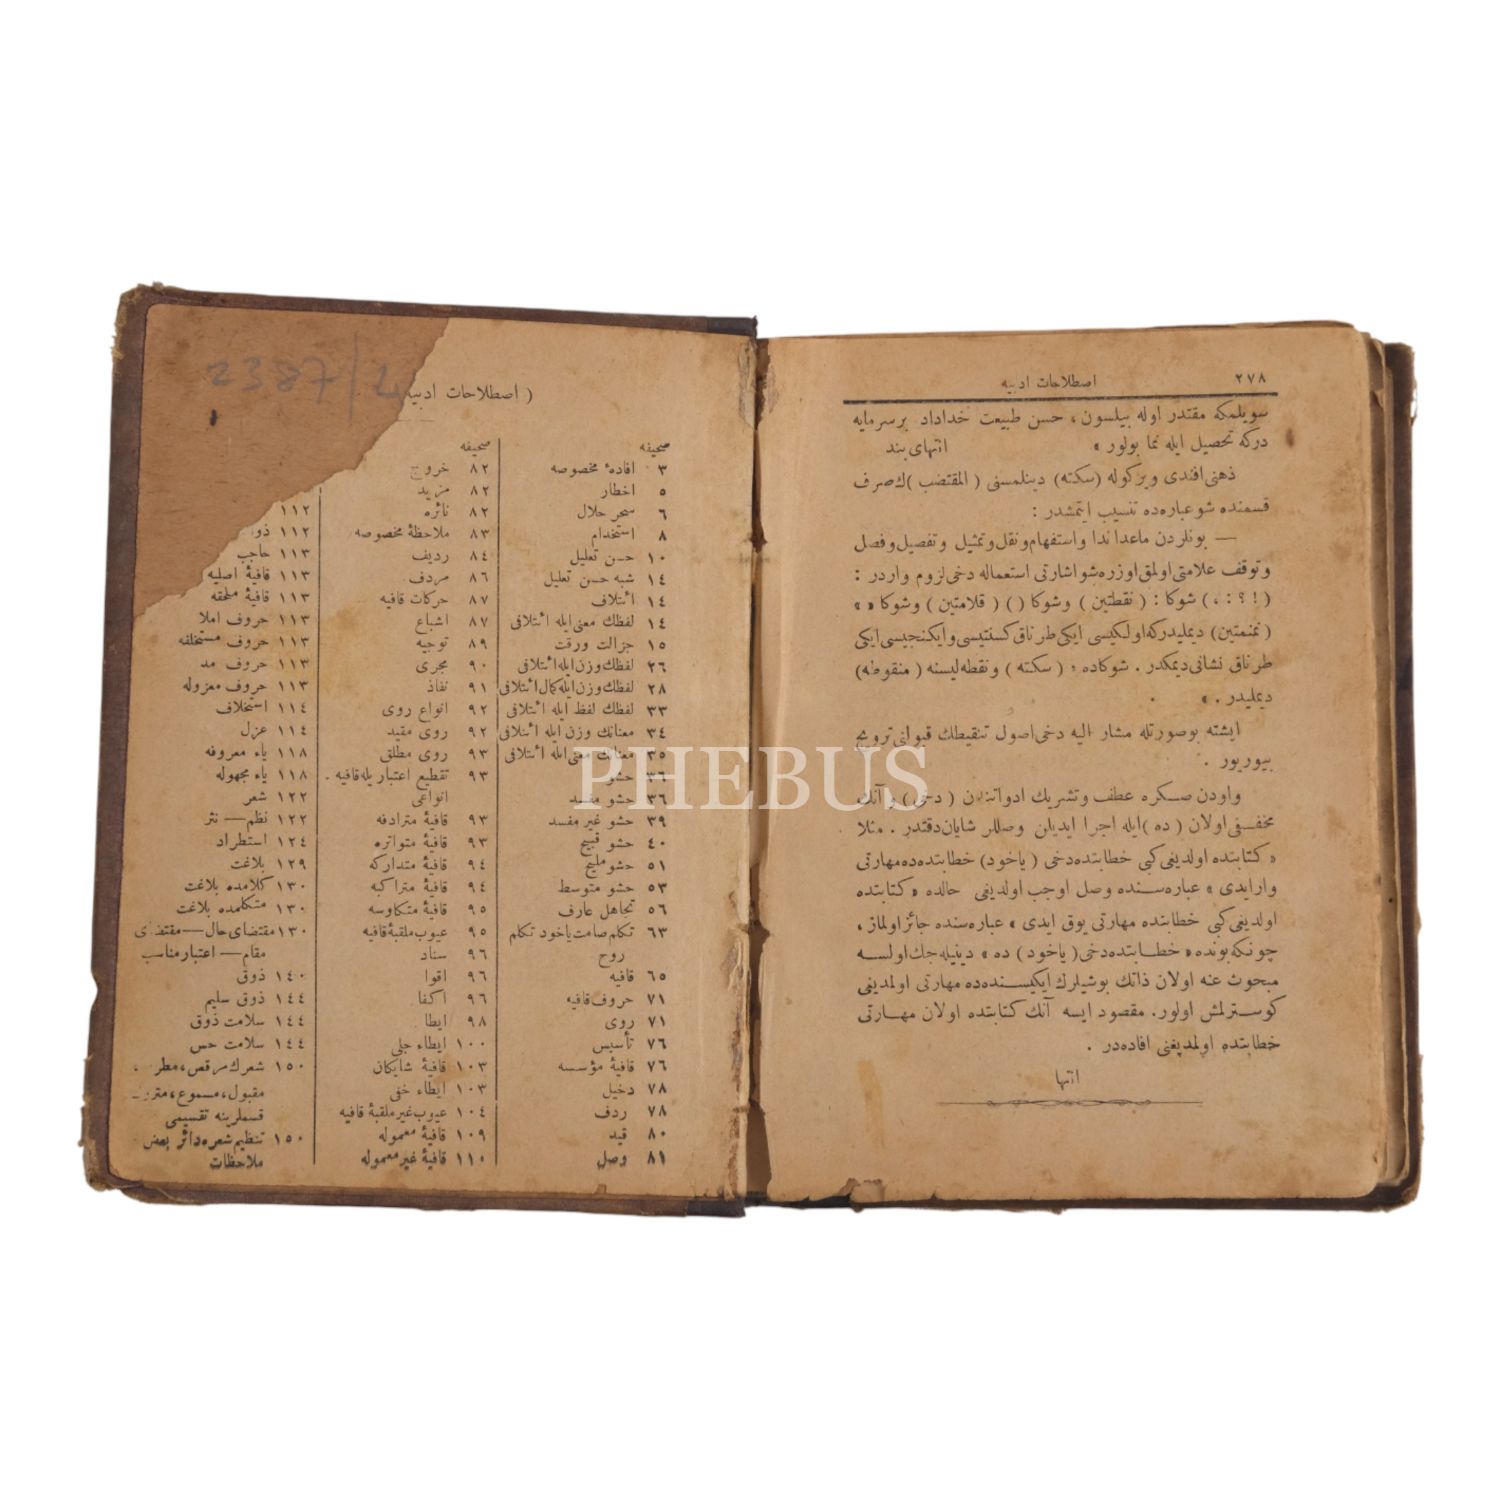 ٢٧٨ اصطلاحات ادبیه
سویلمكه مقتدر اوله بیلسون ، حسن طبیعت خداداد برسرمایه
درکه تحصیل ایله نما بولور » انتهای بند
ذهنی افندی ویرکوله (سکته) دینلمسنی ( المقتضب )ك صرف
قسمنده شو عباره ده تنسیب ایتمشدر :
— بونلردن ماعدا ندا و استفهام و نقل و تمثیل و تفصیل و فصل
و توقف علامتی اولمق اوزره شو اشارتی استعماله دخی لزوم واردر :
( ! ؟ : ، ) شوكا : ( نقطتین ) وشوكا ( ) ( قلامتین ) وشوكا « »
( نمنمتین ) دیملیدرکه اولکیسی ایکی طرناق کسنتیسی و ایکنجیسی ایکی
طرناق نشانی دیمکدر . شوکاده ، ( سکته ) و نقطه لیسنه ( منقوطه )
دیملیدر . »
ایشته بوصورتله مشار الیه دخی اصول تنقیطك قبولنی ترویج
بیوریور .
واودن صکره عطف و تشریك ادواتندن ( دخی ) و آنك
مخففی اولان ( ده ) ایله اجرا ایدیلن وصللر شایان دقتدر . مثلا
« کتابتده اولدیغی کبی خطابتده دخی ( یاخود ) خطابتده ده مهارتی
وارایدی » عباره سنده وصل اوجب اولدیغی حالده « کتابتده
اولدیغی کبی خطابتده مهارتی یوق ایدی » عباره سنده جائز اولماز ،
چونکه بونده « خطابتده دخی ( یاخود ) ده » دینیله جك اولسه
مبحوث عنه اولان ذاتك بوشیلرك ایکیسنده ده مهارتی اولمدیغی
کوسترلمش اولور. مقصود ایسه آنك کتابتده اولان مهارتی
خطابتده اولمدیغنی افاده در .
انتها
( اصطلاحات ادبیه
صحیفه
٣ افادهٔ مخصوصه
٥ اخطار
٦ سحر حلال
٨ استخدام
١٠ حسن تعلیل
١٤ شبه حسن تعلیل
١٤ ائتلاف
١٤ لفظك معنی ایله ائتلافی
١٥ جزالت ورقت
٢٦ لفظك وزن ایله ائتلافی
٢٨ لفظك وزن ایله کمال ائتلافی
٣٣ لفظك لفظ ایله ائتلافی
٣٤ معنانك وزن ایله ائتلافی
٣٥ معنانك معنی ایله ائتلافی
٣٦ حشو
٣٦ حشو مفسد
٣٩ حشو غیر مفسد
٤٠ حشو قبیح
٥١ حشو ملیح
٥٣ حشو متوسط
٥٦ تجاهل عارف
٦٣ تکلم صامت یاخود تکلم
روح
٦٥ قافیه
٧١ حروف قافیه
٧١ روی
٧٦ تأسیس
٧٦ قافیهٔ مؤسسه
٧٨ دخیل
٧٨ ردف
٨٠ قید
٨١ وصل
صحیفه
٨٢ خروج
٨٢ مزید
٨٢ نائره
٨٣ ملاحظهٔ مخصوصه
٨٤ ردیف
٨٦ مردف
٨٧ حرکات قافیه
٨٧ اشباع
٨٩ توجیه
٩٠ مجری
٩١ نفاذ
٩٢ انواع روی
٩٢ روی مقید
٩٣ روی مطلق
٩٣ تقطیع اعتباریله قافیه .
انواعی
٩٣ قافیهٔ مترادفه
٩٣ قافیهٔ متواتره
٩٤ قافیهٔ متدارکه
٩٤ قافیهٔ متراکبه
٩٥ قافیهٔ متکاوسه
٩٥ عیوب ملقبهٔ قافیه
٩٦ سناد
٩٦ اقوا
٩٦ اکفا
٩٨ ایطا
١٠٠ ایطاء جلی
١٠٣ قافیهٔ شایکان
١٠٣ ایطاء خفی
١٠٤ عیوب غیر ملقبهٔ قافیه
١٠٩ قافیهٔ معموله
١١٠ قافیهٔ غیر معموله
١١٢
١١٢ ذو
١١٣ حاجب
١١٣ قافیهٔ اصلیه
١١٣ قافیهٔ ملحقه
١١٣ حروف املا
١١٣ حروف مستخلفه
١١٣ حروف مد
١١٣ حروف معزوله
١١٤ استخلاف
١١٤ عزل
١١٨ یاء معروفه
١١٨ یاء مجهوله
١٢٢ شعر
١٢٢ نظم — نثر
١٢٤ استطراد
١٢٩ بلاغت
١٣٠ کلامده بلاغت
١٣٠ متکلمده بلاغت
١٣٠ مقتضای حال — مقتضای
مقام — اعتبار مناسب
١٤٠ ذوق
١٤٤ ذوق سلیم
١٤٤ سلامت ذوق
١٤٤ سلامت حس
١٥٠ شعرك مرقص ، مطرب ،
مقبول ، مسموع ، متروك
قسملرینه تقسیمی
١٥٠ تنظیم شعره دائر بعض
ملاحظات
2387/2
PHEBUS